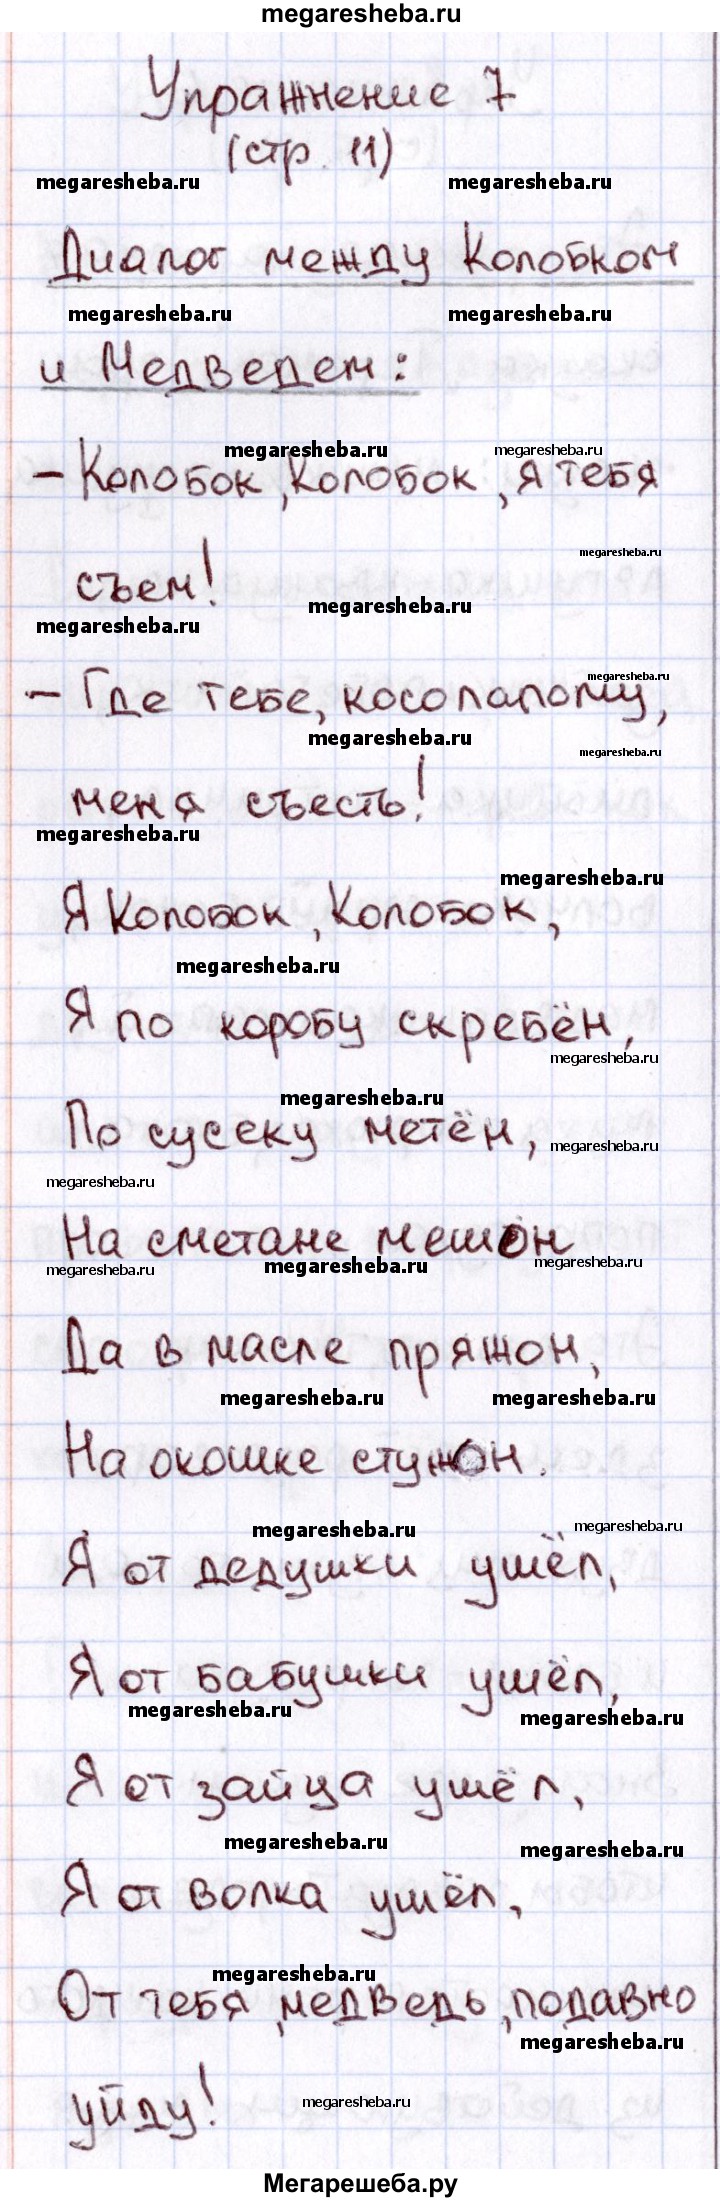 megaresheba.ru
Упражнение 7
(стр. 11)
megaresheba.ru megaresheba.ru
Диалог между Колобком
megaresheba.ru megaresheba.ru
и Медведем:
megaresheba.ru megaresheba.ru
– Колобок, Колобок, я тебя
megaresheba.ru
съем!
megaresheba.ru
megaresheba.ru
megaresheba.ru
– Где тебе, косолапому,
megaresheba.ru
megaresheba.ru
меня съесть!
megaresheba.ru
megaresheba.ru
Я Колобок, Колобок,
megaresheba.ru
Я по коробу скребён,
megaresheba.ru
megaresheba.ru
По сусеку метён,
megaresheba.ru
megaresheba.ru
На сметане мешон
megaresheba.ru megaresheba.ru megaresheba.ru
Да в масле пряжон,
megaresheba.ru megaresheba.ru
На окошке стужон.
megaresheba.ru megaresheba.ru
Я от дедушки ушёл,
Я от бабушки ушёл,
megaresheba.ru megaresheba.ru
Я от зайца ушёл,
megaresheba.ru megaresheba.ru
Я от волка ушёл,
megaresheba.ru
От тебя, медведь, подавно
megaresheba.ru
уйду!
megaresheba.ru
Мегарешеба.ру